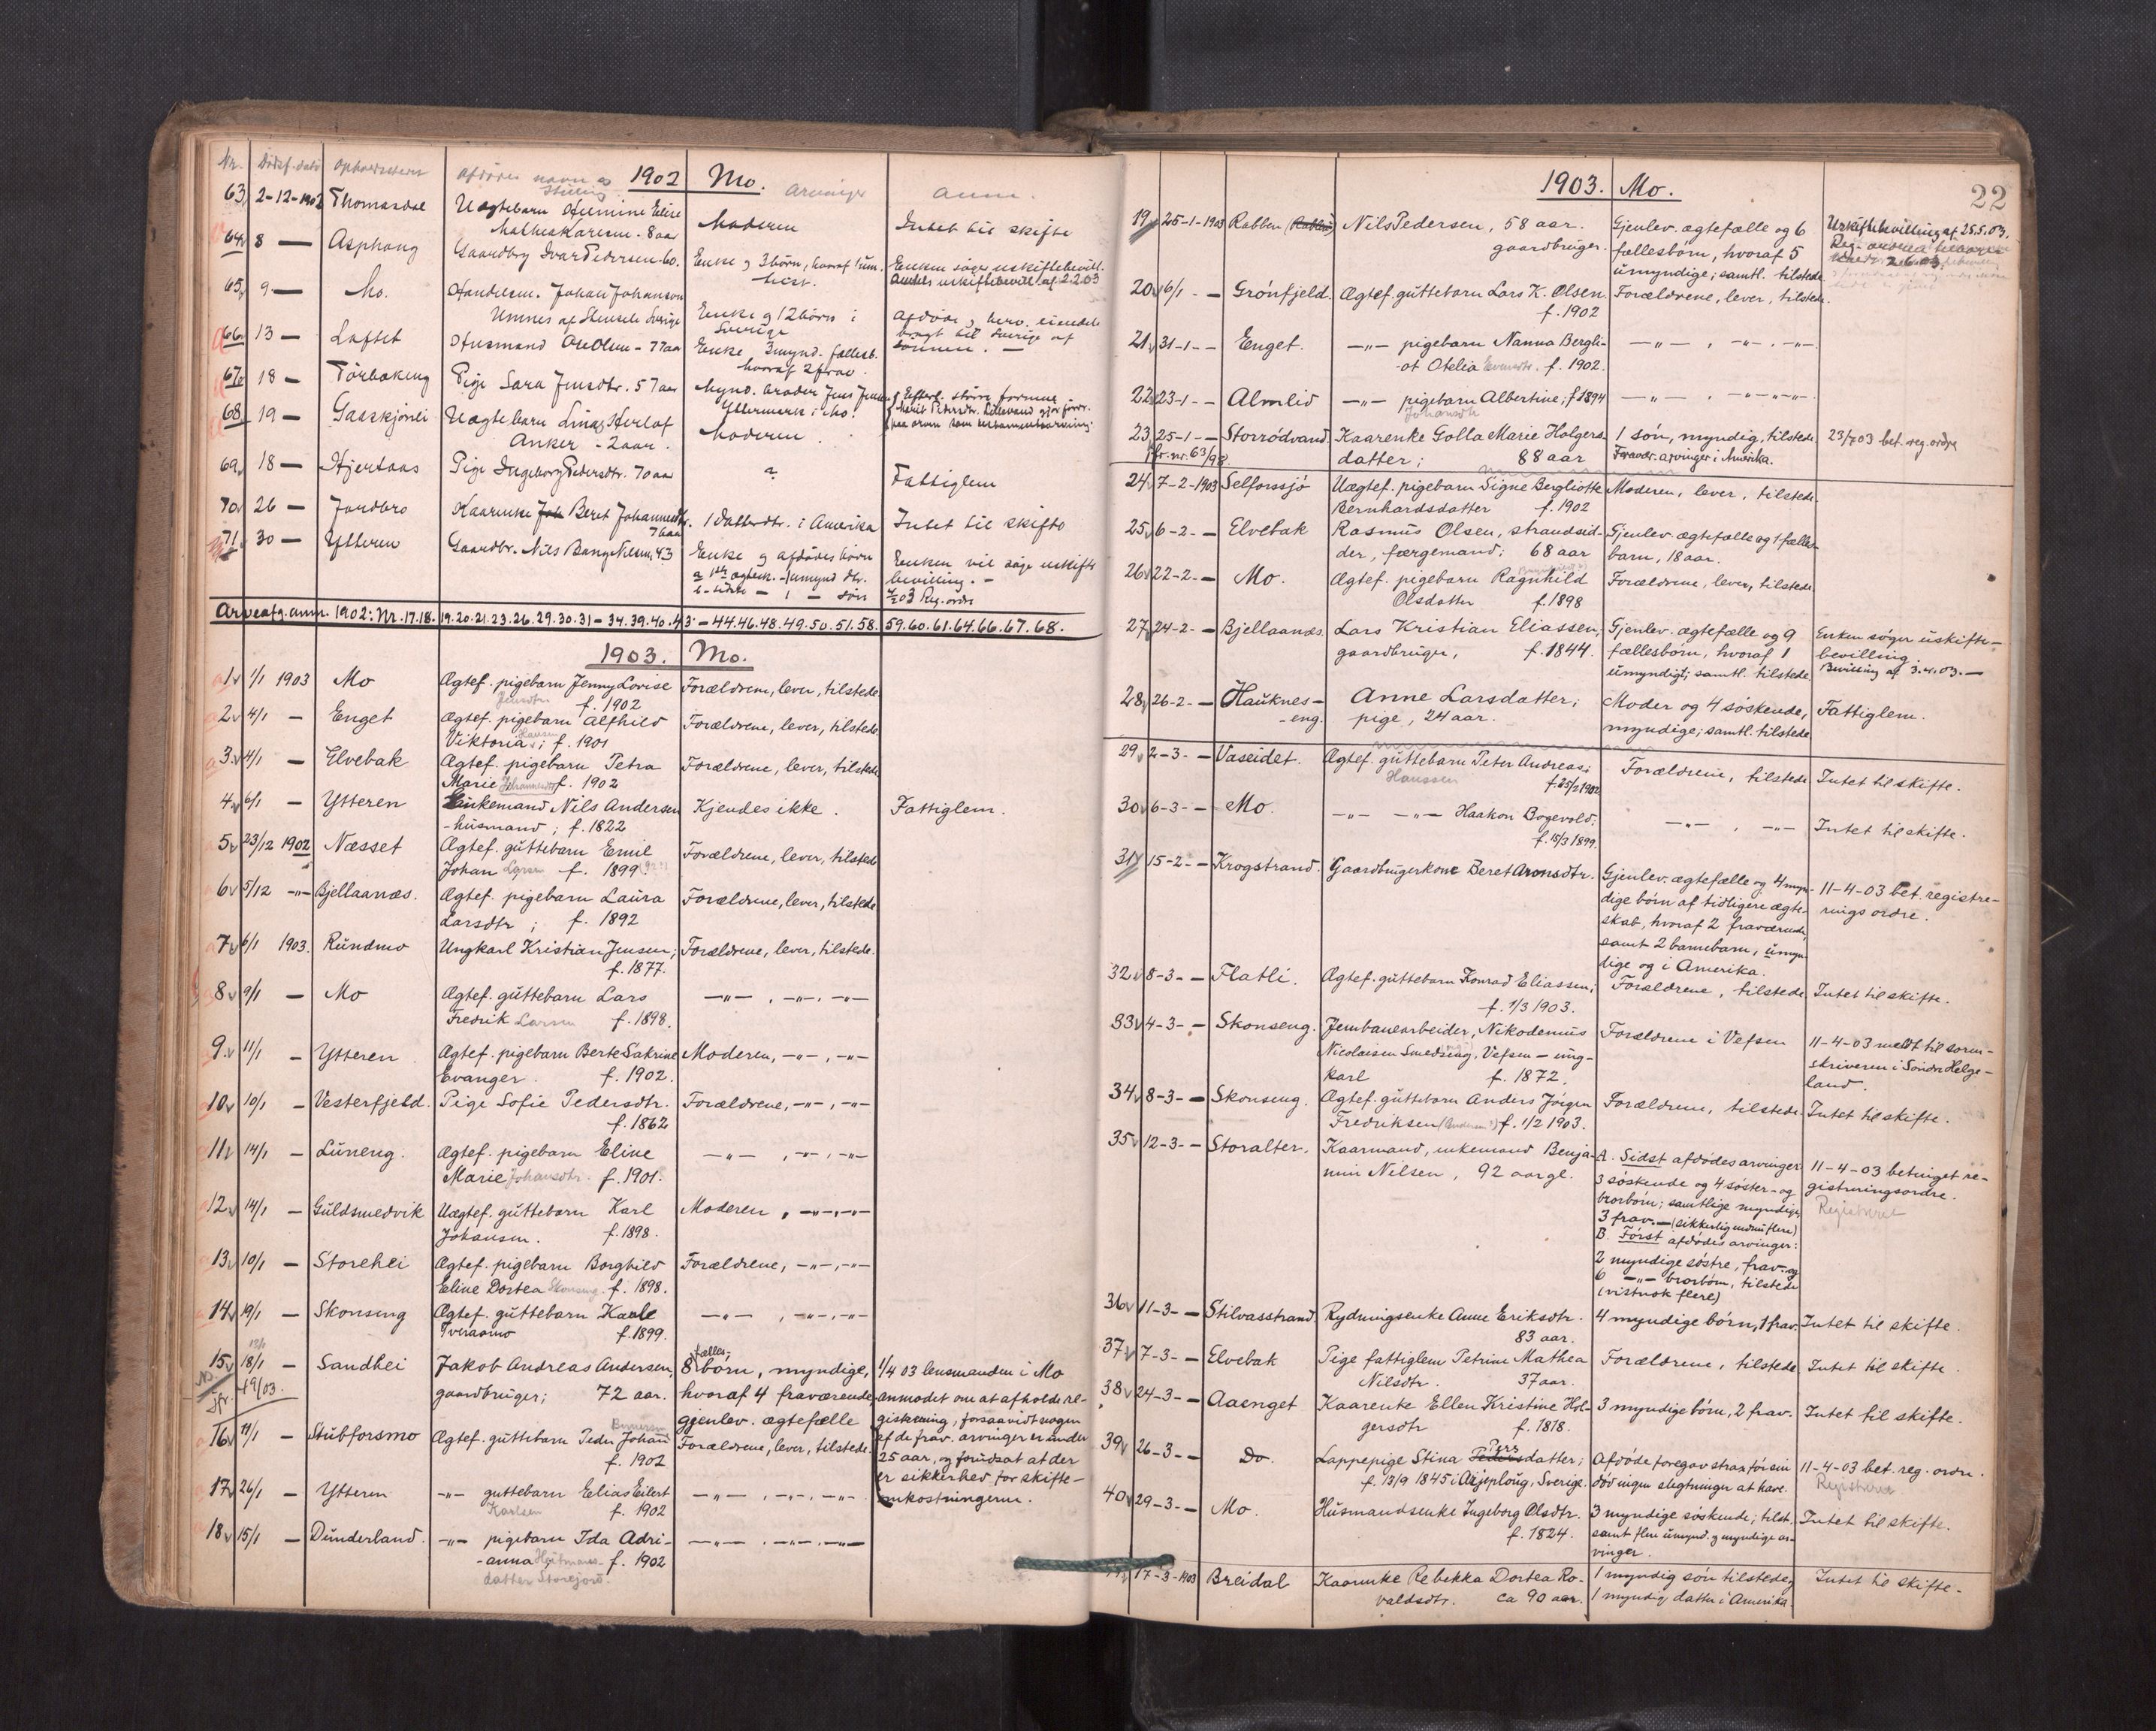 Nr. Dödsf. dato Opholdssted Afdödes navn og stilling 1902 Mo. Arvinger Anm.
63 2-12-1902 Thomasdal Uægtebarn Hermine Elise Moderen Intet til skifte
Mathea Karlsen - 8 aar
64 8 — Asphaug Gaardbrg Ivar Pedersen 60. Enke og 3 börn, hvoraf 1 um. Enken söger uskiftebevill.
Meddelt uskiftebevill. af 2.2.03
65 9 — Mo. Handelsm. Johan Johanson Enke og 12 börn i Afdöde
Umnes af Stensele Sverige Sverige bragt til Sverige af sönnen. —
66 13 — Loftet Husmand Ole Olsen - 77 aar Enke, 3 mynd. fællesb.
hvoraf 2 frav.
67 18 — Pige Sara Jensdtr. 57 aar Mynd. broder Jens Jensen
Yttermark i Mo.
68 19 — Gaaskjönli Uægtebarn Herlof Moderen.
Anker - 2 aar.
69 18 — Hjertaas Pige Ingeborg Pedersdtr. 70 aar ? Fattiglem
70 26 — Jordbro Kaarenke Joh Beret Johannesdtr. 1 datterdtr. i Amerika Intet til skifte
76 aar
71 30 — Ytteren Gaardbr. Nils Bang Nilsen 43 Enke og afdödes börn Enken vil söge uskifte
a 1ste ægtesk. - 1 umynd dtr. bevilling. -
b - sidste — 1 — sön 03 Reg. ordre
Arveafg. anm. 1902: Nr. 17. 18. 19. 20. 21. 23. 26. 29. 30. 31 — 34. 39. 40. 43 — 44. 46. 48. 49. 50. 51. 58. 59. 60. 61. 64. 66. 67. 68.
1903. Mo.
1 1/1 1903 Mo Ægtef. pigebarn Jenny Lovise Forældrene, lever, tilstede
f. 1902
2 4/1 — Enget Ægtef. pigebarn Alfhild Forældrene, lever, tilstede
Viktoria Hansen; f. 1901
3 4/1 — Elvebak Ægtef. pigebarn Petra Forældrene, lever, tilstede
Marie Johannesdtr f. 1902
4 6/1 — Ytteren Enkemand Nils Andersen Kjendes ikke. Fattiglem.
- husmand; f. 1822
5 23/12 1902 Næsset Ægtef. guttebarn Emil Forældrene, lever, tilstede
Johan Larsen f. 1899
6 5/12 -"- Bjellaanæs. Ægtef. pigebarn Laura Forældrene, lever, tilstede
Larsdtr; f. 1892
7 6/1 1903. Rundmo Ungkarl Kristian Jensen; Forældrene, lever, tilstede.
f. 1877.
8 9/1 — Mo Ægtef. guttebarn Lars -"-, -"-, -"-
Fredrik Larsen f. 1898.
9. 11/1 — Ytteren Ægtef. pigebarn Berte Sakrine Moderen, -"-, -"-
Evanger. f. 1902.
10 10/1 — Vesterfjeld. Pige Sofie Pedersdtr. Forældrene, -"-, -"-
f. 1862
11 14/1 — Luneng. Ægtef. pigebarn Eline -"-, -"-, -"-
Marie Johansdtr. f. 1901.
12 14/1 — Guldsmedvik Uægtef. guttebarn Karl Moderen, -"-, -"-
Johansen. f. 1898.
13 10/1 — Storehei Ægtef. pigebarn Borghild Forældrene, -"-, -"-
Eline Dortea Skonseng. f. 1898.
14 19/1 — Skonseng Ægtef. guttebarn Kaale -"-, -"-, -"-
Tveraamo f. 1899.
15 18/1 — Sandhei Jakob Andreas Andersen, 8 fælles- börn, myndige, 1/4 03 lensmanden i Mo
Jfr. 49/03. gaardbruger; 72 aar. hvoraf 4 fraværende, anmodet om at afholde re-
gjenlev. ægtefælle gistrering, forsaavidt nogen
16 11/1 — Stubforsmo Ægtef. guttebarn Peder Johan Forældrene, lever, tilstede. af de frav. arvinger er under
f. 1902 25 aar, og forudsat at der
er sikkerhed for skifte-
17 26/1 — Ytteren -"- guttebarn Elias Eilert -"-, -"-, -"- omkostningerne.
Karlsen f. 1902
18 15/1 — Dunderland. -"- pigebarn Ida Adri- -"-, -"-, -"-
- anna Heitmans- f. 1902
datter Storejord.
22
1903. Mo.
19 25-1-1903 Rabben Nils Pedersen, 58 aar. Gjenlev. ægtefælle og 6 Uskiftebevilling af 25.5.03.
gaardbruger. fællesbörn, hvoraf 5
umyndige; samtl. tilstede
20 16/1 - — Grönfjeld. Ægtef. guttebarn Lars K. Olsen Forældrene, lever, tilstede.
f. 1902
21 31-1- — Enget. -"- pigebarn Nanna Bergli- -"-, -"-, -"-.
-ot Otelia f. 1902.
22 23-1- — Almlid -"- pigebarn Albertine; f 1894 -"-, -"-, -"-
Johansdtr
23 25-1- — Storrödvand. Kaarenke Golla Marie Holgers- 1 sön, myndig, tilstede. 23/7 03 bet. reg. ordre
Jfr. nr. 63/98. datter; 88 aar Fravær. arvinger i Amerika.
24 7-2-1903 Selforssjö Uægtef. pigebarn Signe Bergliotte Moderen, lever, tilstede
Bernhardsdatter f. 1902
25 6-2- — Elvebak Rasmus Olsen, strandsid- Gjenlev. ægtefælle og 1 fælles-
der, færgemand; 68 aar barn, 18 aar.
26 22-2- — Mo. Ægtef. pigebarn Ragnhild Forældrene, lever, tilstede
Olsdatter f. 1898
27 24-2- — Bjellaanæs. Lars Kristian Eliassen, Gjenlev. ægtefælle og 9 Enken söger uskifte-
gaardbruger, f. 1844. fællesbörn, hvoraf 1 bevilling.
umyndigt; samtl. tilstede Bevilling af 3.4.03. —
28 26-2- — Hauknes- Anne Larsdatter; Moder og 4 söskende, Fattiglem.
-eng. pige, 24 aar. myndige; samtl. tilstede
29 2-3- — Vaseidet. Ægtef. guttebarn Peter Andreas; Forældrene, tilstede Intet til skifte.
Hanssen f. 25/2 1902
30 6-3- — Mo. -"- -"- Haakon Bogevold; -"-, -"- Intet til skifte.
f. 15/3 1899.
31 15-2- — Krogstrand. Gaardbrugerkone Beret Aronsdtr. Gjenlev. ægtefælle og 4 myn- 11-4-03 bet. registre-
dige börn af tidligere ægte- rings ordre.
skab, hvoraf 2 fraværende,
samt 2 barnebarn, umyn-
dige og i Amerika.
32 8-3- — Flatli. Ægtef. guttebarn Konrad Eliassen; Forældrene, tilstede Intet til skifte.
f. 1/3 1903.
33 4-3- — Skonseng. Jernbanearbeider, Nikodemus Forældrene i Vefsen 11-4-03 meldt til soren-
Nicolaisen Smedseng, Vefsen — ung- skriveren i Söndre Helge-
karl f. 1872. land.
34 8-3- — Skonseng. Ægtef. guttebarn Anders Jörgen Forældrene, tilstede. Intet til skifte.
Fredriksen f. 1/2 1903.
35 12-3- — Storalter. Kaarmand, enkemand Benja- A. Sidst afdödes arvinger 11-4-03 betinget re-
min Nilsen, 92 aar gl. 3 söskende og 4 söster- og gistreringsordre.
brorbörn; samtlige myndige, Registreret
3 frav. — (sikkerlig endnu flere)
B. Först afdödes arvinger:
2 myndige söstre, frav. og
6 -"- brorbörn, tilstede
(vistnok flere)
36 11-3- — Stilvasstrand. Rydningsenke Anne Eriksdtr. 4 myndige börn, 1 frav. Intet til skifte.
83 aar.
37 7-3- — Elvebak Pige fattiglem Petrine Mathea Forældrene, tilstede Intet til skifte.
Nilsdtr. 37 aar.
38 24-3- — Aaenget Kaarenke Ellen Kristine Hol- 3 myndige börn, 2 frav. Intet til skifte.
gersdtr f. 1818.
39 26-3- — Do. Lappepige Stina Pers Pedersdatter; Afdöde foregav strax för sin 11-4-03 bet. reg. ordre.
f. 13/9 1845 i Arjeploug, Sverige. död ingen slegtninger at have. Registreret
40 29-3- — Mo. Husmandsenke Ingeborg Olsdtr. 3 myndige söskende; tilst. Intet til skifte.
f. 1824. samt flere umynd. og myndige ar-
vinger.
17-3-1903 Breidal Kaarenke Rebekka Dortea Ro- 1 myndig sön tilstede, Intet til skifte.
valdsdtr. ca 90 aar. 1 myndig datter i Amerika.